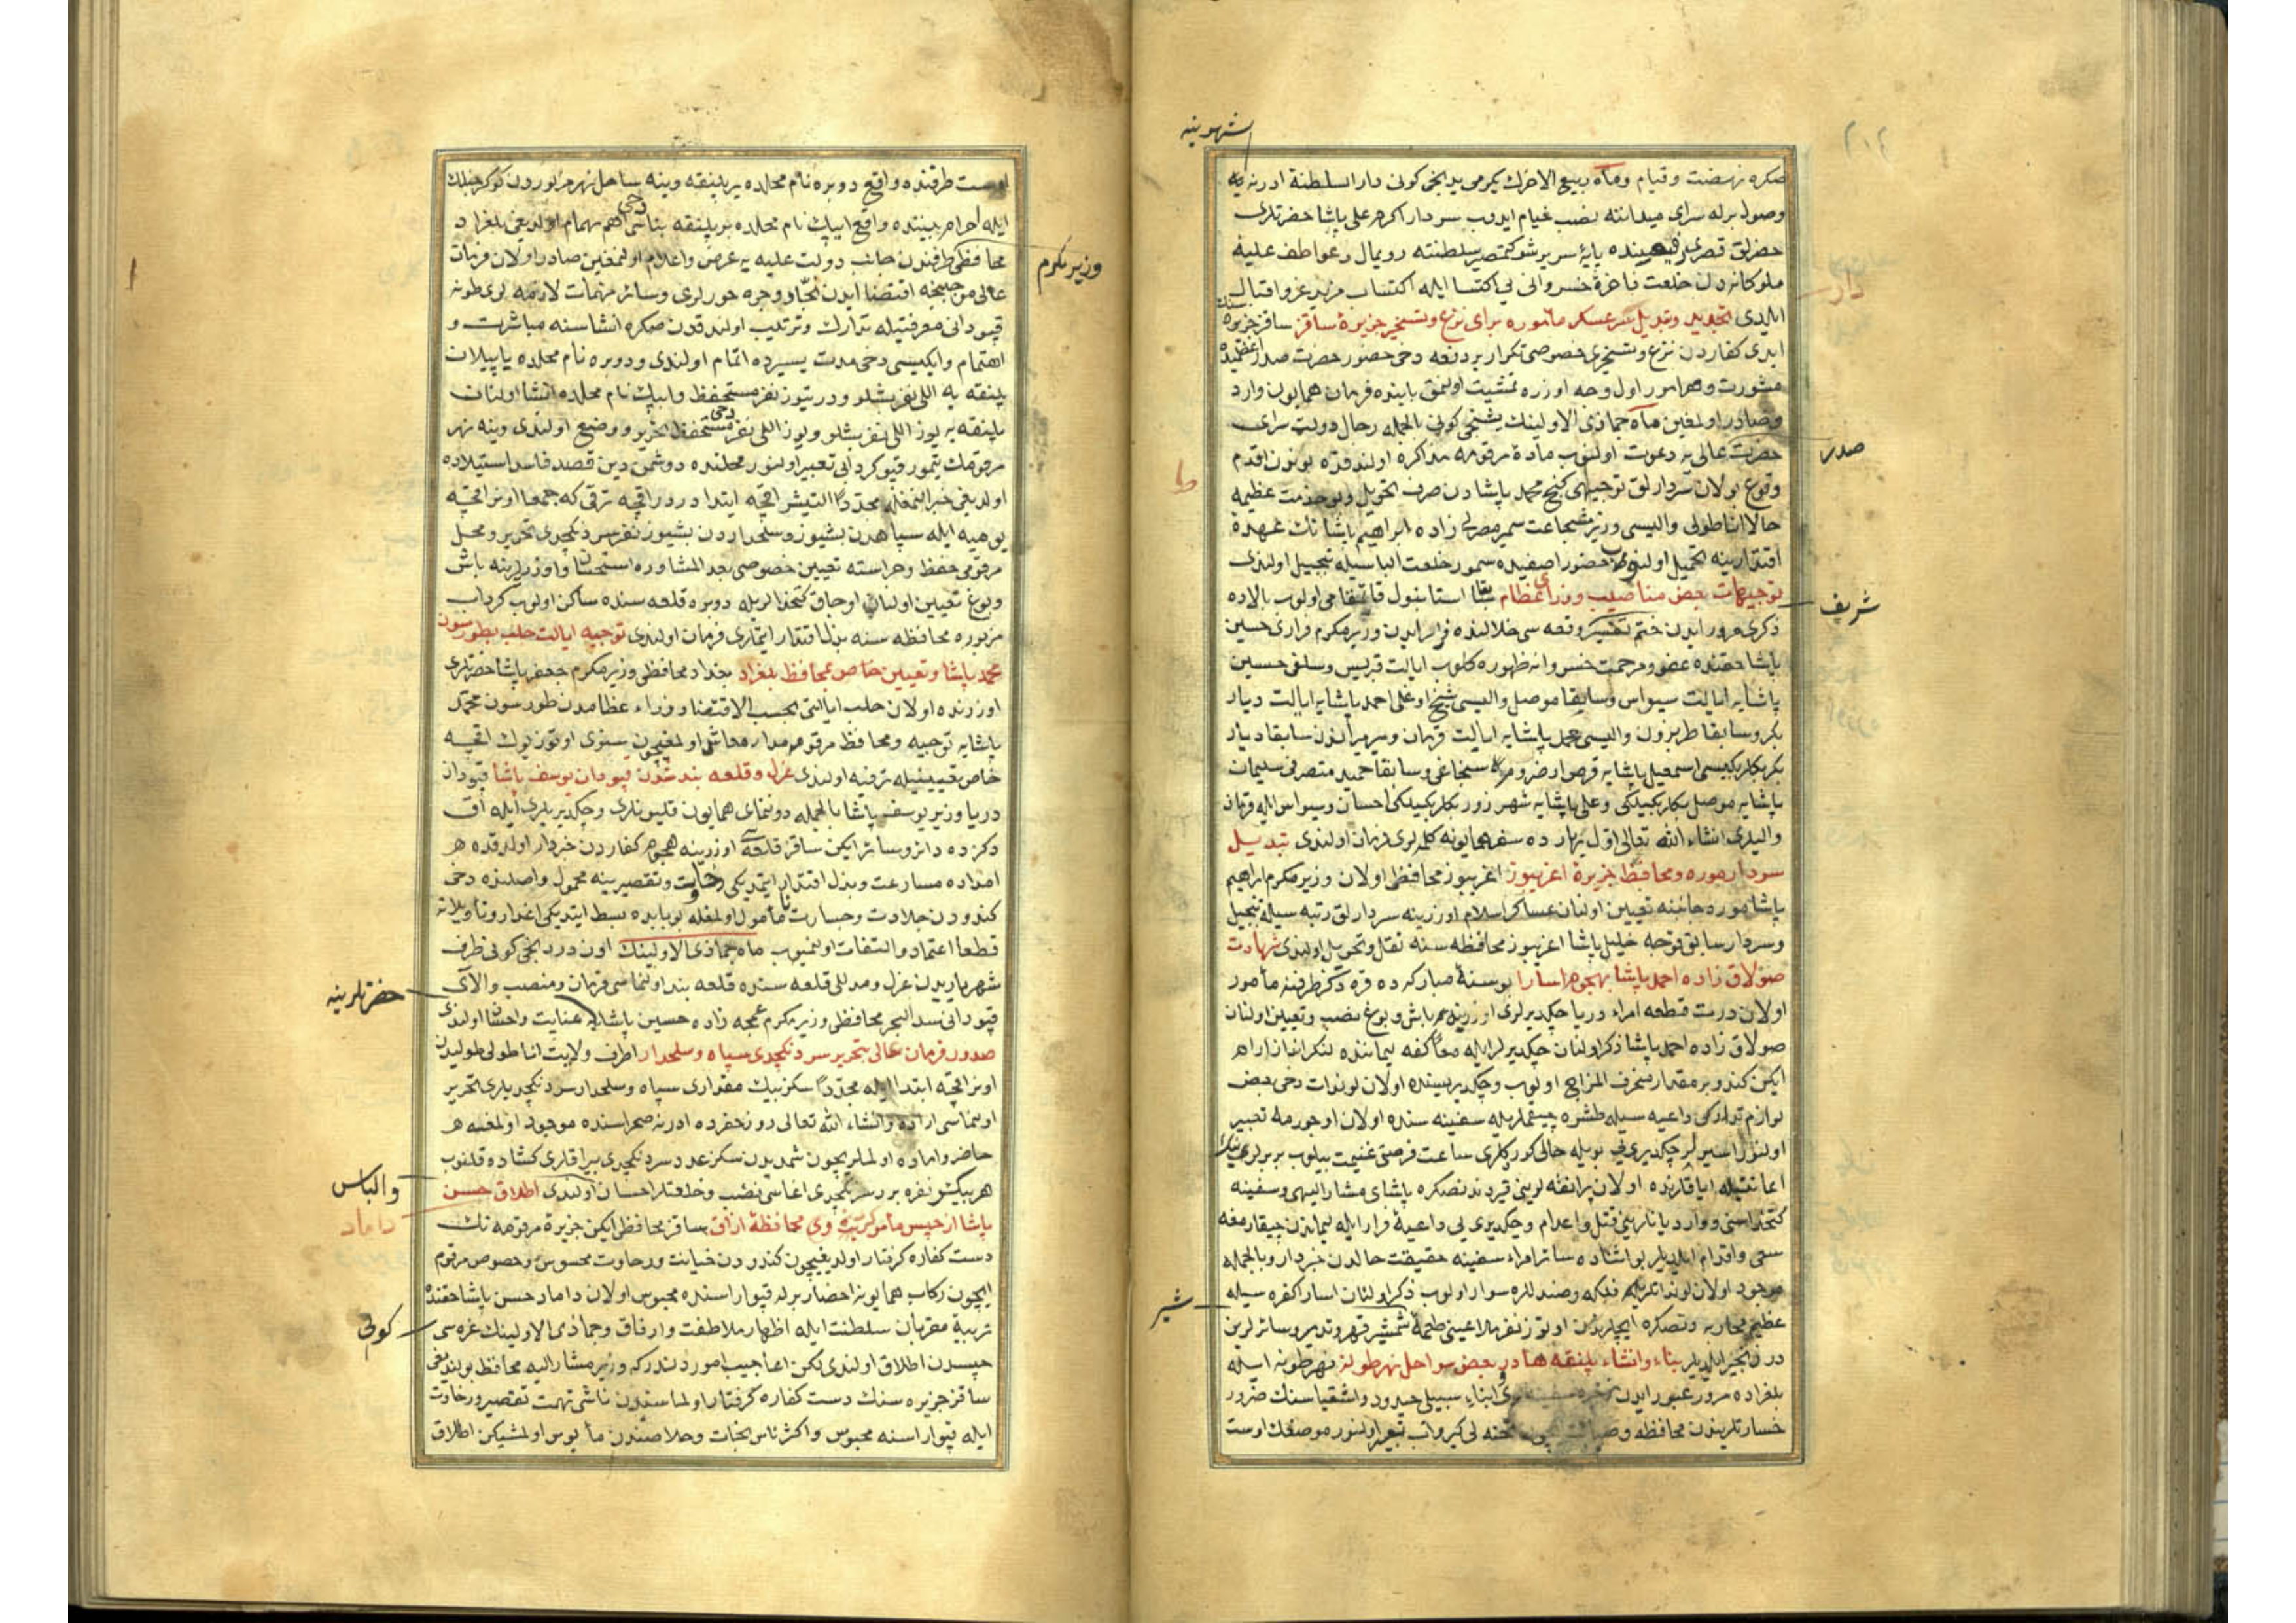 الشهرینه
صکره نهضت وقیام وماه ربیع الاخرك یکرمی یدنجی کونی دار السلطنة ادرنه یه
وصول برله سرای میداننه نصب خیام ایدوب سردار اکرم علی پاشا حضرتلری
پایهٔ سریر شوکتمصیر سلطنته رویمال وعواطف علیهٔ
ملوکانه دن خلعت فاخرهٔ خسروانی ایله اکتساب مزید عز واقبال
ایلدی تجدید وتبدیل سرعسکر مأموره برای نزع وتسخیر جزیرهٔ ساقز ساقز جزیره سنك
ایدی کفاردن نزع وتسخیری خصوصی تکرار بر دفعه دخی حضور حضرت صدر اعظمیده
مشورت وهر امور اول وجه اوزره تمشیت اولنمق بابنده فرمان همایون وارد
وصادر اولمغین ماه جماذی الاولینك بشنجی کونی بالجمله رجال دولت سرای
صدر
حضرت عالی یه دعوت اولنوب مادهٔ مرقومه مذاکره اولندقده بوندن اقدم
وقوع بولان سردارلق توجیهی کنج محمد پاشادن صرف وتحویل وبو خدمت عظیمه
حالا اناطولی والیسی وزیر شجاعت سمیر مصرلی زاده ابراهیم پاشانك عهدهٔ
اقتدارینه تحمیل اولنوب حضور اصفیده سمور خلعت الباسیله تبجیل اولندی
توجیهات بعض مناصب وزرای عظام سابقا استانبول قائمقامی اولوب بالاده
شریف
ذکری مرور ایدن ختم وقعه سی خلالنده فرار ایدن وزیر مکرم فراری حسین
پاشا حقنده عفو ومرحمت خسروانه ظهوره کلوب ایالت قبریس وسلفی حسین
پاشایه ایالت سیواس وسابقا موصل والیسی شیخ اوغلی احمد پاشایه ایالت دیار
بکر وسابقا طربزون والیسی محمد پاشایه ایالت قرمان ومیرمیراندن سابقا دیار
بکر بکلربکیسی اسمعیل پاشایه قرص وارضروم سنجاغی وسابقا حمید متصرفی سلیمان
پاشایه موصل بکلربکیلکی وعلی پاشایه شهرزور بکلربکیلکی احسان وسیواس ایله قرمان
والیلری انشاء الله تعالی اول بهارده سفر همایونه کلملری فرمان اولندی تبدیل
سردار موره ومحافظ جزیرهٔ اغریبوز اغریبوز محافظی اولان وزیر مکرم ابراهیم
پاشا موره جانبنه تعیین اولنان عساکر اسلام اوزرینه سردارلق رتبه سیله تبجیل
وسردار سابق قوجه خلیل پاشا اغریبوز محافظه سنه نقل وتحویل اولندی شهادت
صولاق زاده احمد پاشا بهجوم اسارا بو سنهٔ مبارکه ده قره دکز طرفنه مأمور
اولان درت قطعه امراء دریا چکدیرلری اوزرینه باش وبوغ نصب وتعیین اولنان
صولاق زاده احمد پاشا ذکر اولنان چکدیرلر ایله کفه لیماننده لنکر انداز ارام
ایکن کندو بر مقدار منحرف المزاج اولوب وچکدیریسنده اولان لوندات دخی بعض
لوازم تدارکی داعیه سیله طشره چیقملریله سفینه سنده اولان اوجورمه تعبیر
اولنور اسیرلر چکدیری بویله خالی کوردکلری ساعت فرصتی غنیمت بیلوب بربرلرینك
اعانتیله ایاقلرنده اولان پرانقه لرینی قیروب ندنصکره پاشای مشار الیهی وسفینه
کتخداسنی ووارد یانارینی قتل واعدام وچکدیری یی داعیهٔ فرار ایله لیماندن چیقارمغه
سعی واقدام ایلدیلر بو اثناده سائر امراء سفینه حقیقت حالدن خبردار وبالجمله
موجود اولان لونداتلریله فلیکه وصندللره سوار اولوب ذکر اولنان اسارا کفره سیله
شیر
عظیم محاربه وندنصکره ایچلرندن اوتوز نفر ملاعینی طعمهٔ شمشیر قهر وتدمیر وسائرلرین
در زنجیر ایلدیلر بناء وانشاء پلنقه ها در بعض سواحل نهر طونه نهر طونه ایله
بلغراده مرور عبور ایدن ابناء سبیلی حیدود واشقیاسنك ضرر
خسارتلریندن محافظه وصیانت ایچون تخته لی کیرواب تعبیر اولنور موضعك اوست
اوست طرفنده واقع دوبره نام محلده بر پلنقه وینه ساحل نهر مزبوردن کوکرجنلك
ایله احرام بیننده واقع ایپك نام محلده بر پلنقه بناسی دخی اهم مهام اولدیغی بلغراد
محافظی طرفندن جانب دولت علیه یه عرض واعلام اولنمغین صادر اولان فرمان
وزیر مکرم
عالی موجبنجه اقتضا ایدن نجار وجره خورلری وسائر مهمات لازمه لری طونه
قپودانی معرفتیله تدارك وترتیب اولندقدن صکره انشاسنه مباشرت و
اهتمام وایکیسی دخی مدت یسیرده اتمام اولندی ودوبره نام محلده یاپیلان
پلنقه یه اللی نفر بشلو ودرتیوز نفر مستحفظ وایپك نام محلده انشا اولنان
پلنقه یه یوز اللی نفر بشلو ویوز اللی نفر مستحفظ دخی تحریر ووضع اولندی وینه نهر
مرقومك تیمور قپو کردابی تعبیر اولنور محلنده دوشمن دین قصد فاسد استیلاده
اولدیغی خبر النمغله مجددا التیشر اقچه ابتدا دردر اقچه ترقی که جمعا اونر اقچه
یومیه ایله سپاهدن بشیوز وسلحداردن بشیوز نفر سردنکچدی تحریر ومحل
مرقومی حفظ وحراسته تعیین خصوصی بعد المشاوره استحسان واوزرلرینه باش
وبوغ تعیین اولنان اوجاق کتخدالریله دوبره قلعه سنده ساکن اولوب کرداب
مزبوره محافظه سنه بذل اقتدار ایتملری فرمان اولندی توجیه ایالت حلب بطورسون
محمد پاشا وتعیین خاص بمحافظ بلغراد بغداد محافظی وزیر مکرم جعفر پاشا حضرتلری
اوزرنده اولان حلب ایالتی بحسب الاقتضا وزراء عظامدن طورسون محمد
پاشایه توجیه ومحافظ مرقومه مدار معاش اولمغیچون سنوی اوتوز یوك اقچه
خاص تعیینیله ترفیه اولندی عزل وقلعه بند شدن قپودان یوسف پاشا قپودان
دریا وزیر یوسف پاشا بالجمله دونمای همایون قلیونلری وچکدیریلری ایله اق
دکزده دائر وسائر ایکن ساقز قلعه سی اوزرینه هجوم کفاردن خبردار اولدقده
امداده مسارعت وبذل اقتدار ایتمدیکی رخاوت وتقصیرینه محمول واصلنده دخی
کندودن جلادت وجسارت مأمول اولمغله بو بابده بسط ایتدیکی اعذار وتأویلاته
قطعا اعتماد والتفات اولنمیوب ماه جماذی الاولینك اون دردنجی کونی طرف
شهریاریدن عزل ومدللی قلعه سنده قلعه بند اولنماسی فرمان ومنصب والای
حضرتلرینه
قپودانی سد البحر محافظی وزیر مکرم عمجه زاده حسین پاشا عنایت واحسان اولندی
صدور فرمان عالی بتحریر سردنکچدی سپاه وسلحدار اطراف ولایت اناطولی طولیدن
اونر اقچه ابتدا ایله مجددا سکز بیك مقداری سپاه وسلحدار سردنکچدیلری تحریر
اولنماسی اراده وانشاء الله تعالی روز خضرده ادرنه صحراسنده موجود اولمغله
حاضر واماده اولملریچون شمدیدن سکز عدد سردنکچدی بیراقلری کشاده قلنوب
والباس
هر بیکشو نفره بر سردنکچدی اغاسی نصب وخلعتلر احسان اولندی اطلاق حسن
داماد
پاشا از حبس مأمور شدن وی بمحافظهٔ ازاق ساقز محافظی ایکن جزیرهٔ مرقومه نك
دست کفاره کرفتار اولدیغیچون کندودن خیانت ورخاوت محسوس وخصوص مرقوم
ایچون رکاب همایونه احضار برله قپوار اسنده محبوس اولان داماد حسن پاشا حقنده
تربیهٔ مقربان سلطنت ایله اظهار ملاطفت وارفاق وجماذی الاولینك غره سی
کونی
حبسدن اطلاق اولندی لکن اعاجیب اموردندرکه وزیر مشار الیه محافظ بولندیغی
ساقز جزیره سنك دست کفاره کرفتار اولماسندن ناشی تهمت تقصیر ورخاوت
ایله قپوار اسنه محبوس واکثر ناس نجات وخلاصندن مأیوس اولمشیکن اطلاق